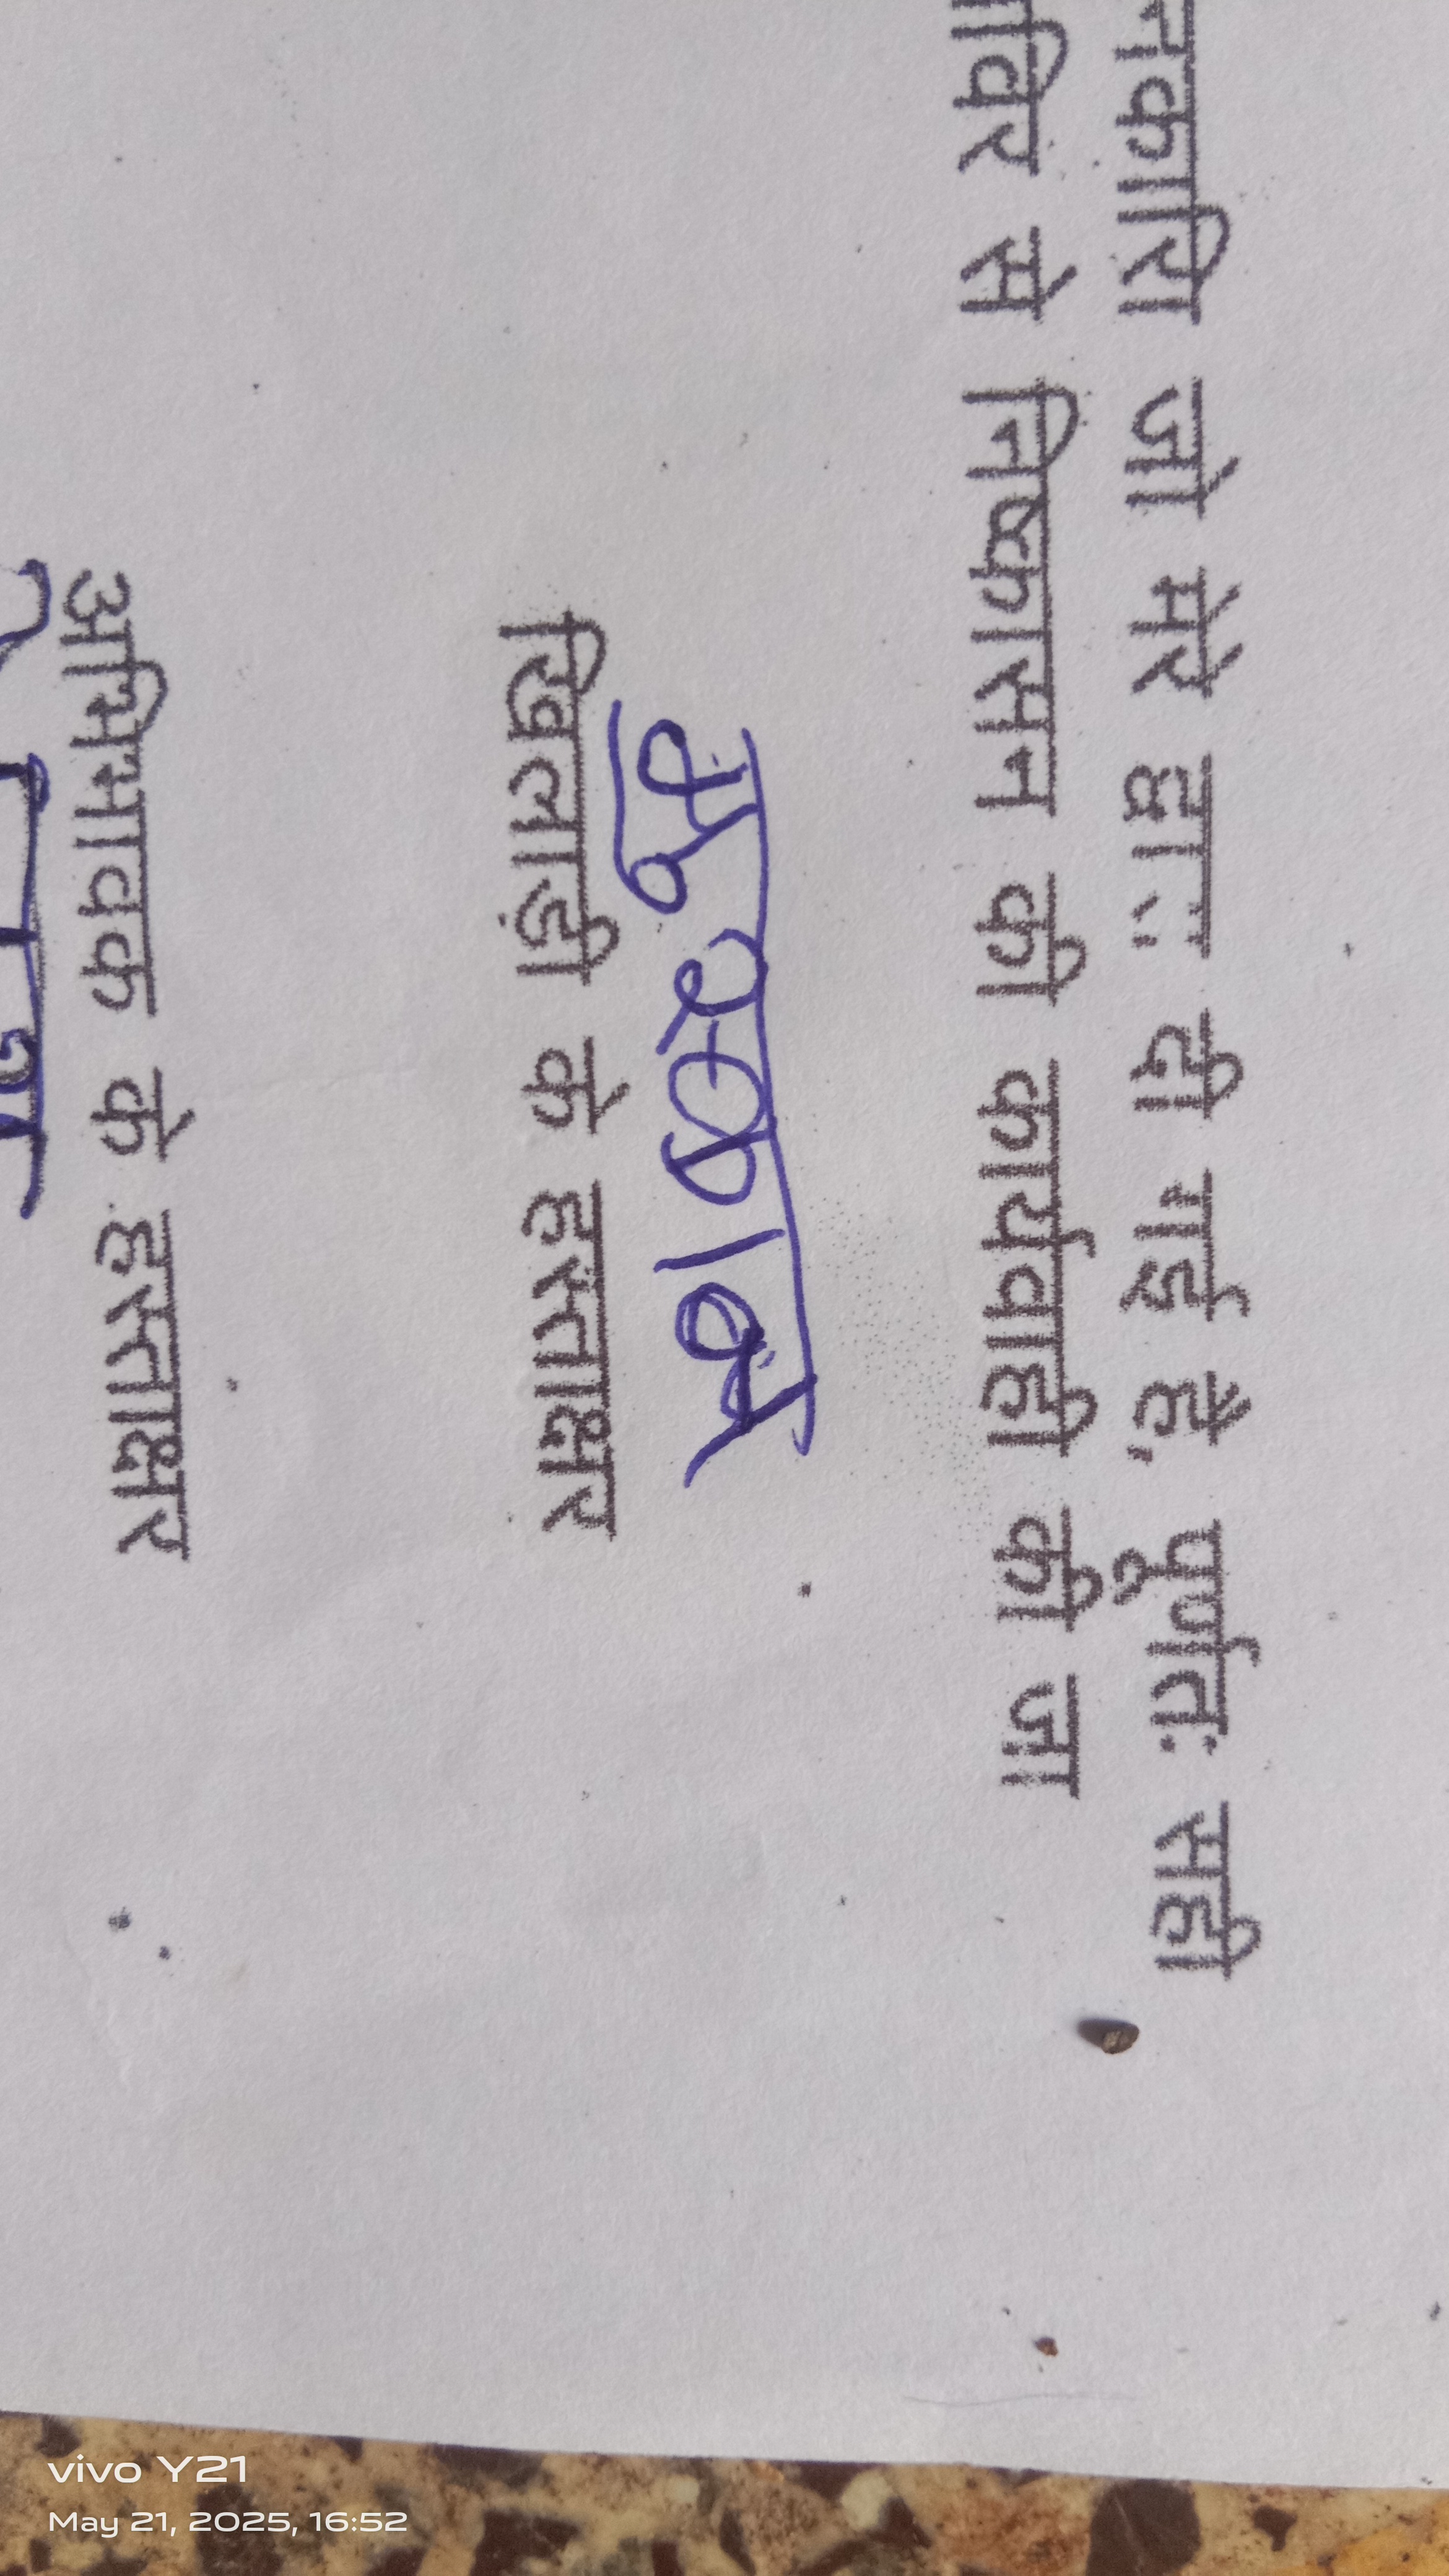 नकारी जो मेरे द्वारा दी गई है, पूर्णतः सही
विर से निष्कासन की कार्यवाही की जा
मुस्कान
खिलाड़ी के हस्ताक्षर
अभिभावक के हस्ताक्षर
vivo Y21
May 21, 2025, 16:52